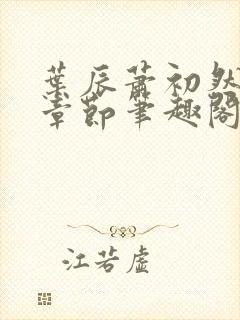 葉辰蕭初然
章節筆趣閣
江若虛